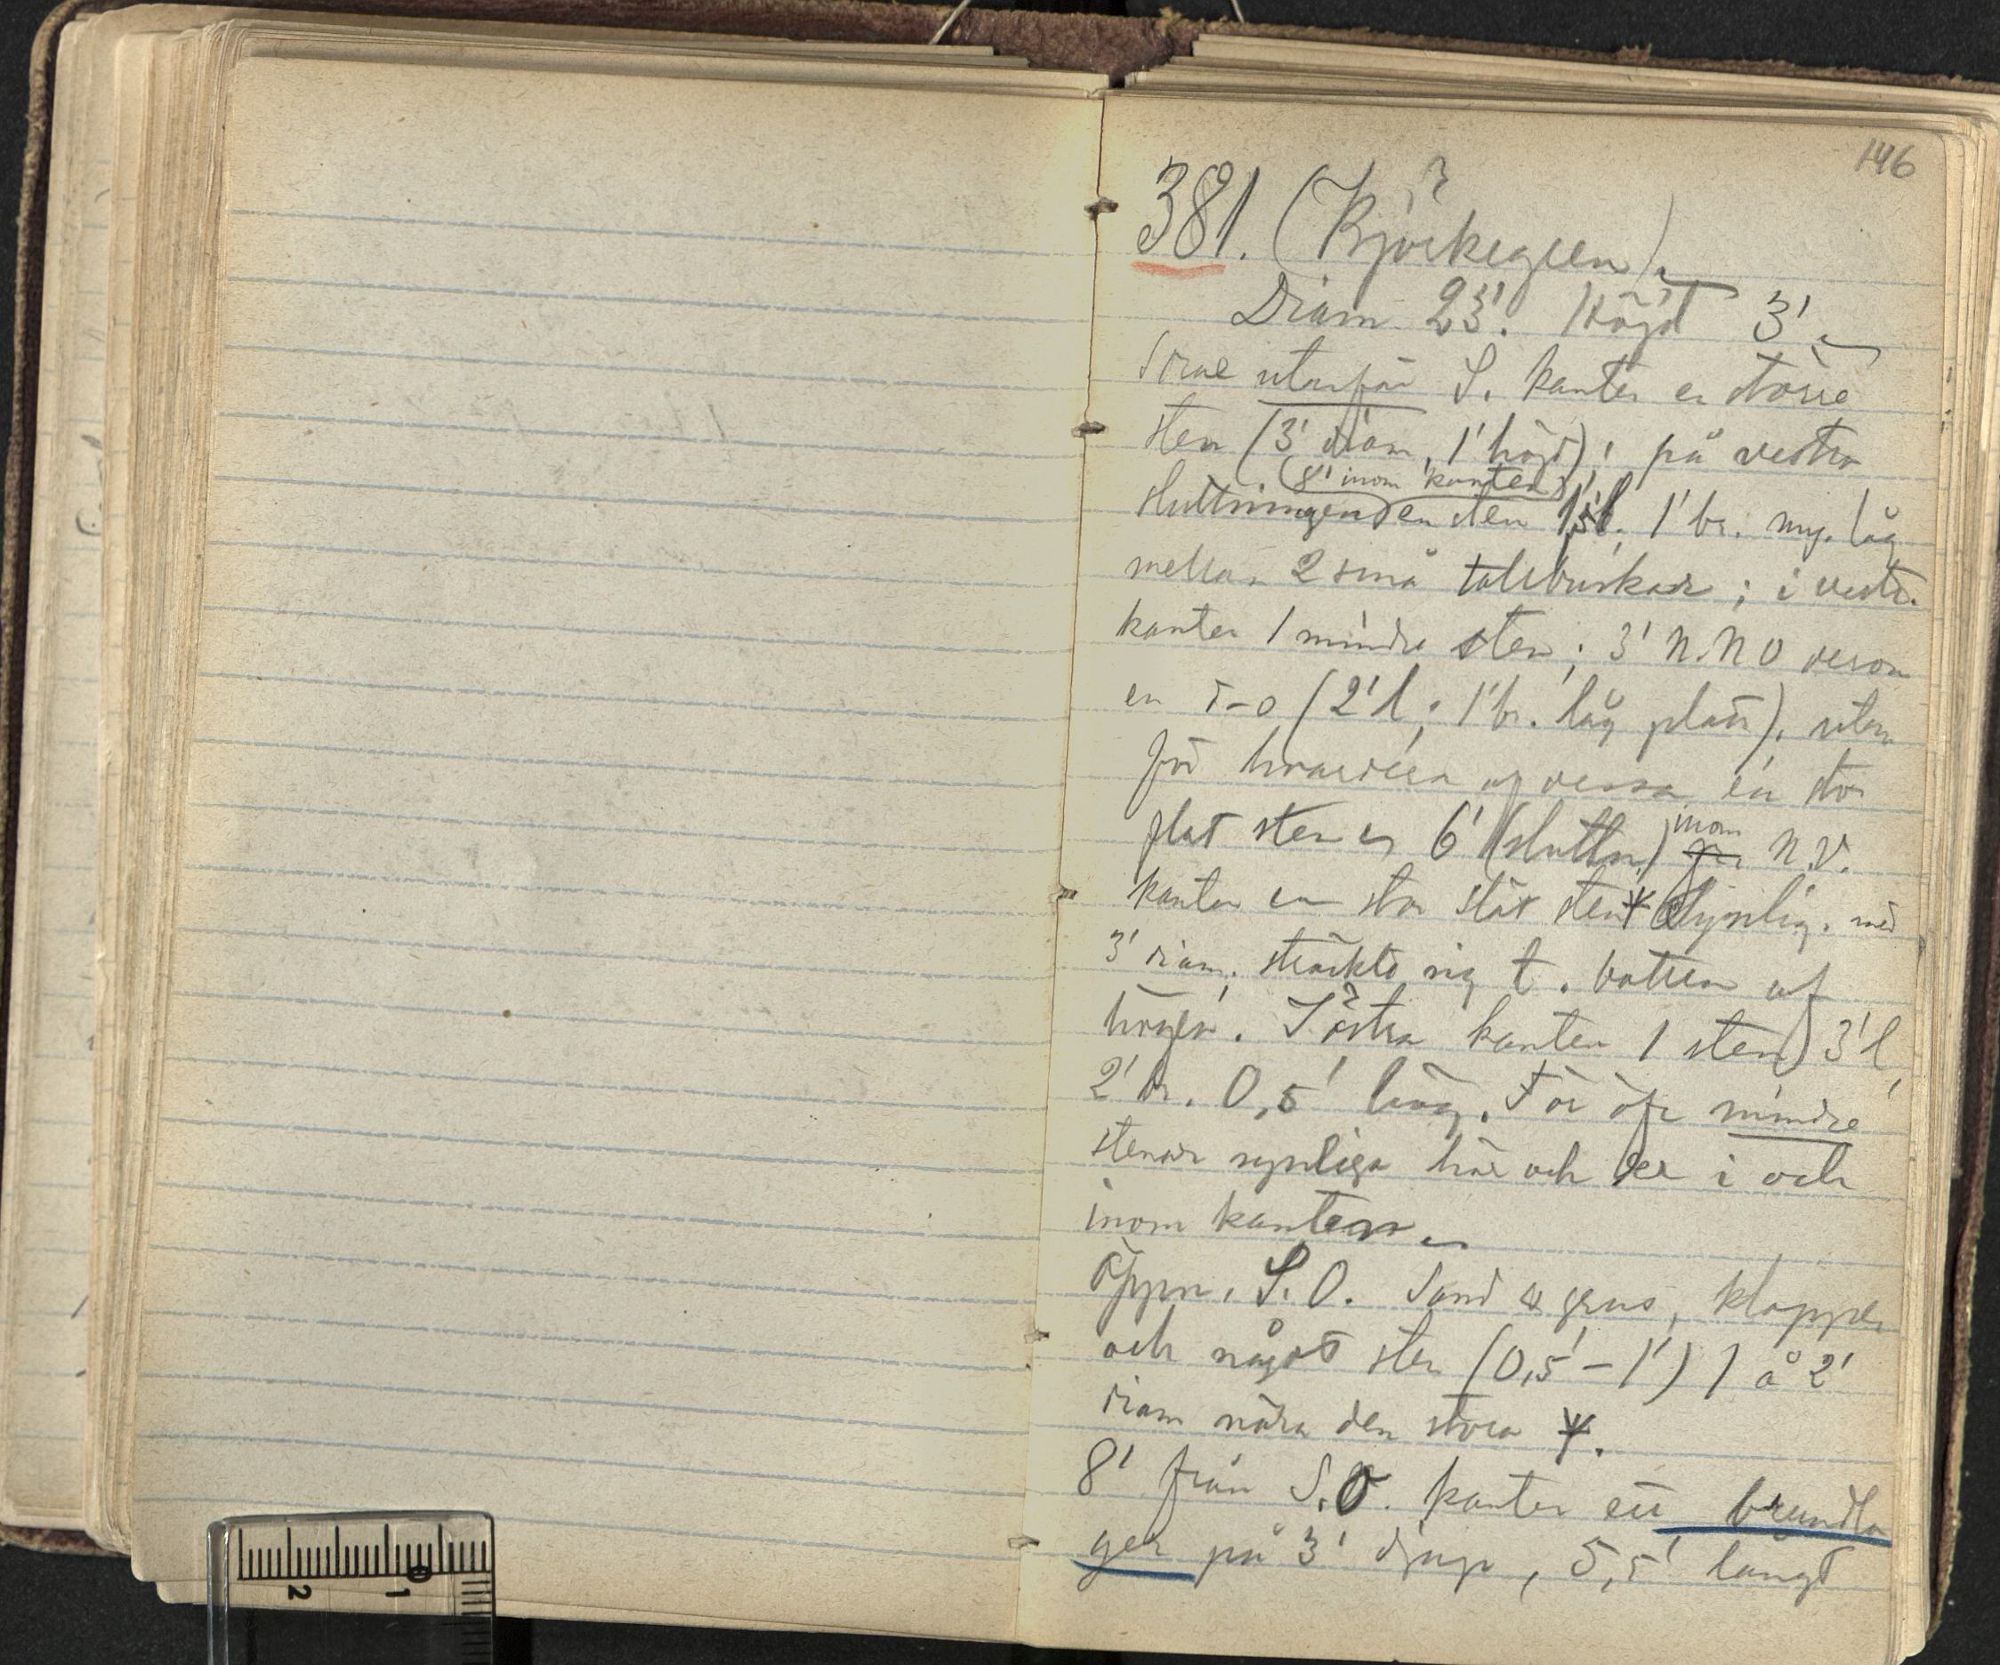 146
381. (Björkegren)
Diam. 23'. Höjd 3'.
Strax utanför S. kanten en större
sten (3' diam, 1' höjd); på vestra
(8' inom kanten)
sluttningen en sten 1,5' l. 1' br. my. låg
mellan 2 små tallbuskar; i vestr.
kanten 1 mindre sten; 3' N.N.O derom
en d-o (2' l; 1' br. låg platt). utan
för hvardera af dessa en stor
plat sten 6' (sluttn.) inom N.V.
kanten en stor slät sten synlig. med
3' diam. sträckte sig t. botten af
högen. I östra kanten 1 sten 3' l
2' br. 0,5' hög. För öfr mindre
stenar synliga här och der i och
inom kanten
Öppn. S.O. Sand & grus, klapper
och något sten (0,5' - 1') 1 å 2'
diam nära den stora
8' från S.O. kanten ett brandla
ger på 3' djup, 5,5' långt
2
1
0